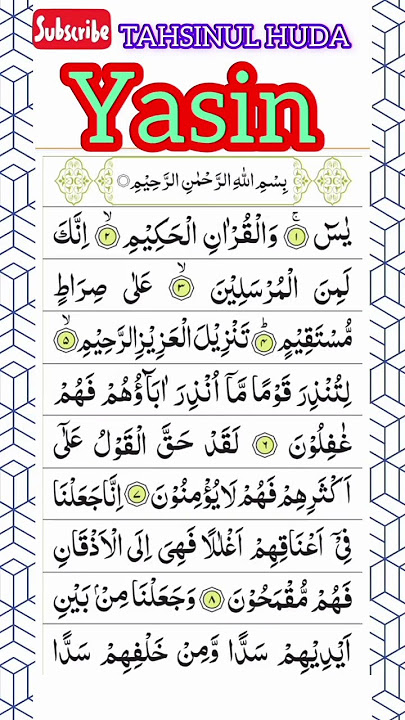 Subscribe TAHSINUL HUDA
Yasin
بِسْمِ اللهِ الرَّحْمٰنِ الرَّحِيْمِ ○
يٰسٓ ۚ ﴿١﴾ وَالْقُرْاٰنِ الْحَكِيْمِ ۙ ﴿٢﴾ اِنَّكَ
لَمِنَ الْمُرْسَلِيْنَ ۙ ﴿٣﴾ عَلٰى صِرَاطٍ
مُّسْتَقِيْمٍ ؕ ﴿٤﴾ تَنْزِيْلَ الْعَزِيْزِ الرَّحِيْمِ ۙ ﴿٥﴾
لِتُنْذِرَ قَوْمًا مَّاۤ اُنْذِرَ اٰبَآؤُهُمْ فَهُمْ
غٰفِلُوْنَ ﴿٦﴾ لَقَدْ حَقَّ الْقَوْلُ عَلٰٓى
اَكْثَرِهِمْ فَهُمْ لَا يُؤْمِنُوْنَ ﴿٧﴾ اِنَّا جَعَلْنَا
فِيْۤ اَعْنَاقِهِمْ اَغْلٰلًا فَهِيَ اِلَى الْاَذْقَانِ
فَهُمْ مُّقْمَحُوْنَ ﴿٨﴾ وَجَعَلْنَا مِنْۢ بَيْنِ
اَيْدِيْهِمْ سَدًّا وَّمِنْ خَلْفِهِمْ سَدًّا